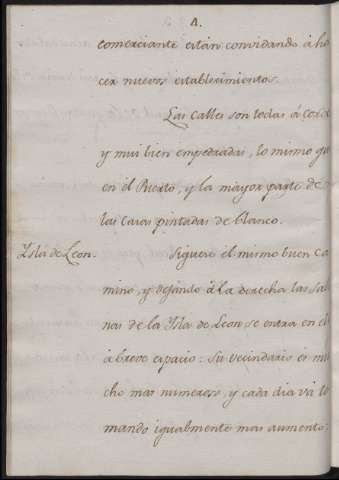 4.
comerciante están convidando á ha
cer nuevos establecimientos.
Las calles son todas á
y mui bien empedradas, lo mismo qe
en el Puerto, y la mayor parte de
las casas pintadas de blanco.
Ysla de Leon. Siguese el mismo buen ca
mino, y dejando á la derecha las Sali
nas de la Ysla de Leon se entra en el
á breve espacio: Su vecindario es mu
cho mas numeroso, y cada dia vá to
mando igualmente mas aumento: